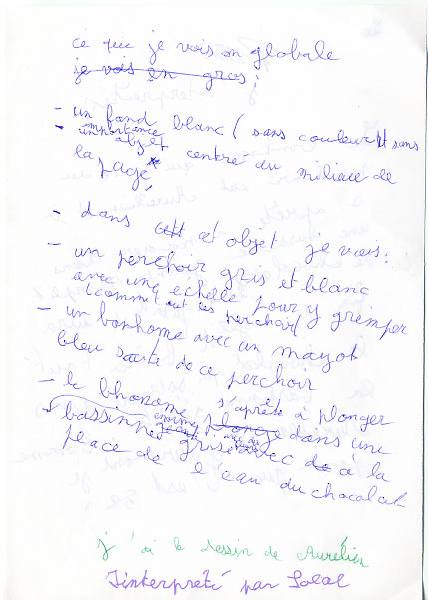 ce que je vois en globale
je vois en gros :
- un fond blanc (sans couleur) et sans
- importance
objet centré au milieu de
la page
- dans cet objet je vois :
- un perchoir gris et blanc
avec une echelle pour y grimper
(comme tout les perchoir)
- un bonhome avec un mayot
bleu saute de ce perchoir
- le bhonome s'aprête à plonger
plonge dans une
bassinne enorme grise avec de à la
place de l'eau du chocolat
j'ai le dessin de Aurélien
Interpreté par Solal